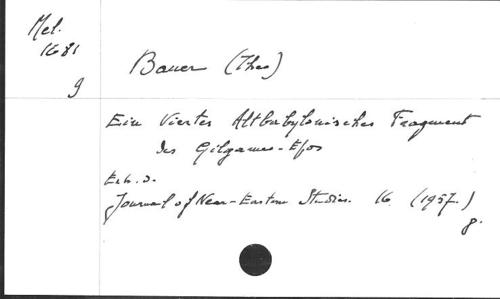 Mel.
1681
g
Bauer (Theo)
Ein Viertes Altbabylonisches Fragment
des Gilgames-Epos
Ext. d.
Journal of Near-Eastern Studies. 16. (1957.)
g.